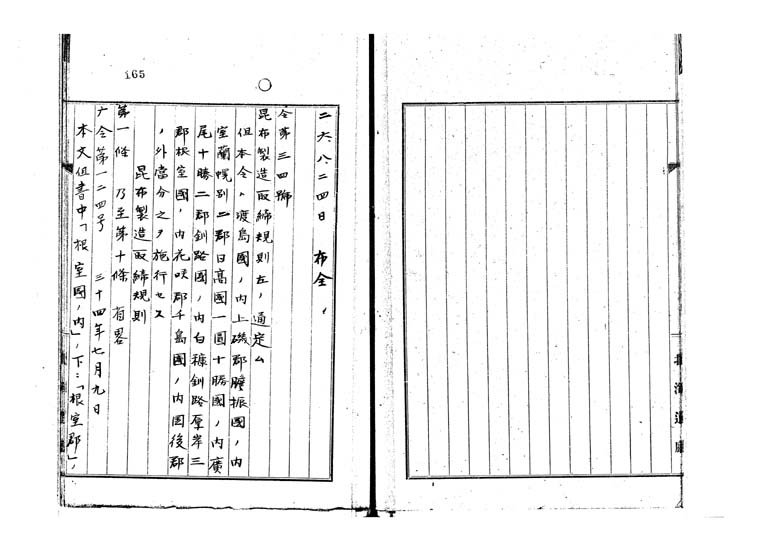 165
二六、八、二四日 布令、
令第三四號
昆布製造取締規則左ノ通定ム
但本令ハ渡島國ノ内上磯郡膽振國ノ内
室蘭幌別二郡日高國一圓十勝國ノ内廣
尾十勝二郡釧路國ノ内白糠釧路厚岸三
郡根室國ノ内花咲郡千島國ノ内国後郡
ノ外當分之ヲ施行セス
昆布製造取締規則
第一條 乃至第十條 省畧
庁令第一二四号 三十四年七月九日
本文但書中「根室國ノ内」ノ下ニ「根室郡」ノ
北海道廳